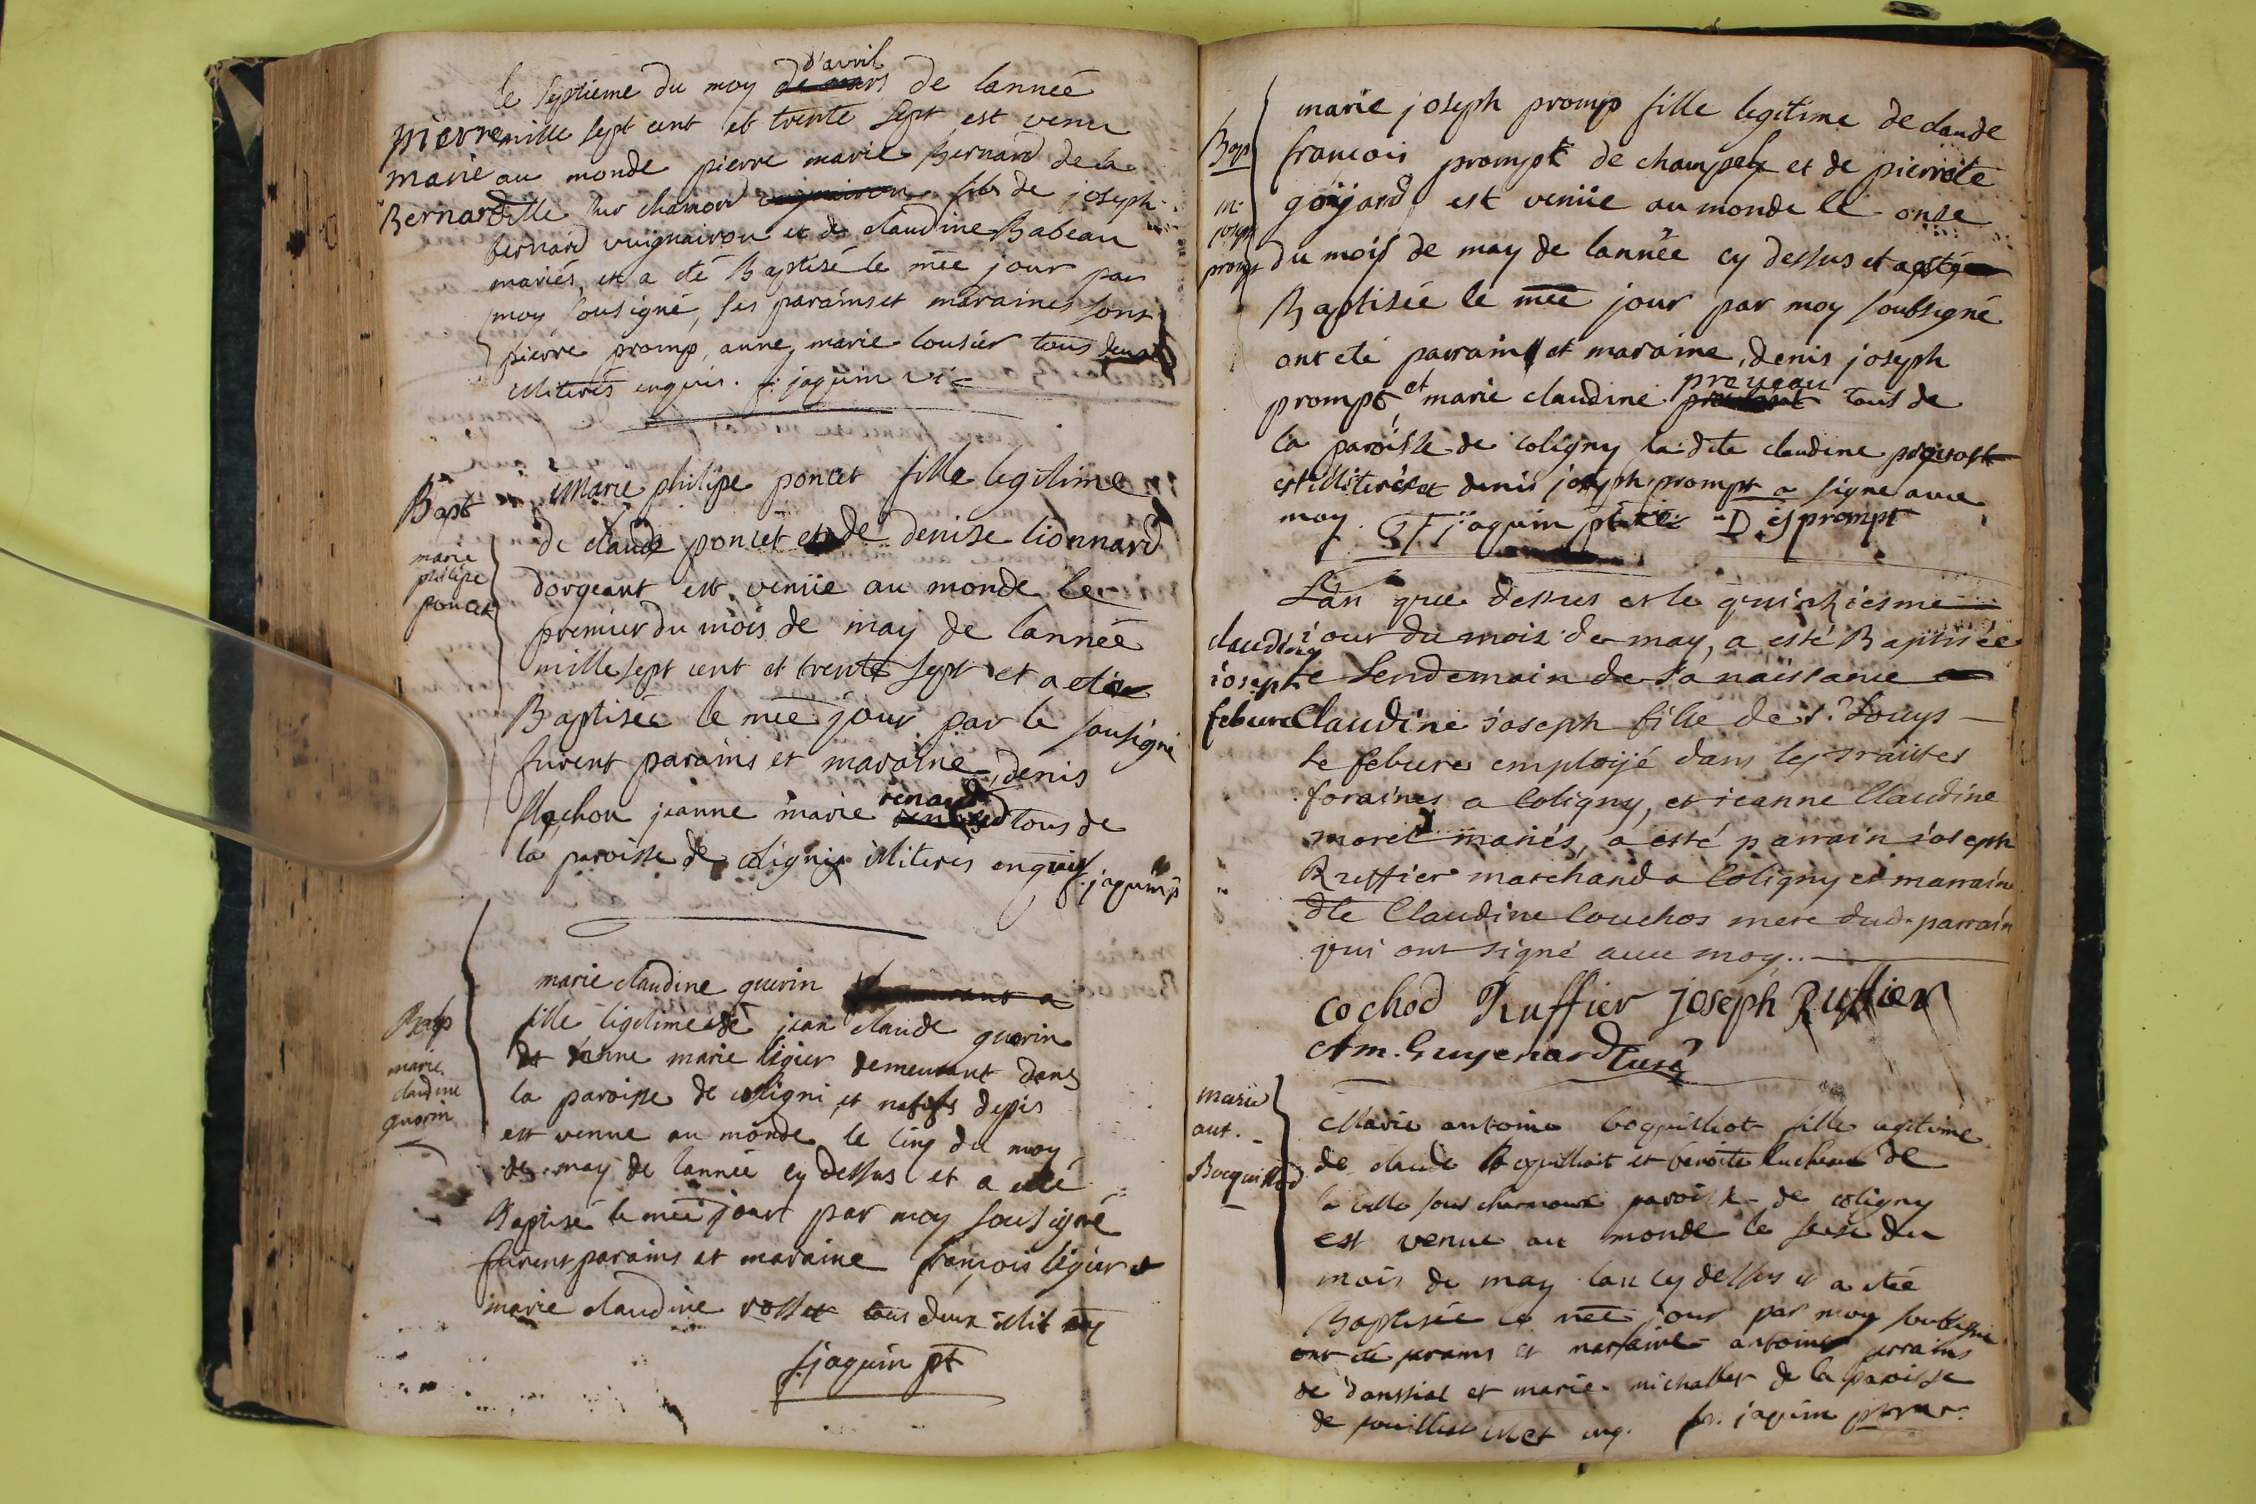 d'avril
le septieme du moy de mars de lannée
pierre mille sept cent et trente sept est venu
marie au monde pierre marie Bernard de la
Bernard ville sur chamou fils de joseph
bernard vuignairon et de claudine Babeau
mariés, et a eté Baptisé le mee jour par
moy sousigné, ses parains et maraines sont
pierre promp, anne marie cousier tous deux
illiterés enquis. f. jaquin vi
Bapt
marie
philipe
poncet
Marie philipe poncet fille legitime
de claude poncet et de denise lionnard
dorgeant est venüe au monde le
premier du mois de may de lannée
mille sept cent et trente sept et a etée
Baptisée le mee jour par le sousigné
furent parains et maraine denis
jeanne marie renaud tous de
la paroisse de coligni illiterés enquis f. jaquin p
Bap
marie
claudine
guerin
marie claudine guerin
fille ligitime de jean claude guerin
et jeanne marie ligier demeurant dans
la paroisse de coligni et natifs depis
est venue au monde le cinq du moy
de may de lannée cy dessus et a eté
Baptisé le mee jour par moy sousigné
furent parains et maraine francois ligier et
marie claudine rosset tous deux illit enq
f. jaquin pt
Bap
m.
joseph
promp
marie joseph promp fille legitime de claude
francois prompt de champel et de pierrete
goyard est venüe au monde le onse
du mois de may de lannée cy dessus et a esté
Baptisée le mee jour par moy soubsigné
ont eté parrain et maraine, denis joseph
prompt, et marie claudine preveau tous de
la paroisse de coligny la dite claudine
est illiterée et denis joseph prompt a signe avec
moy. F jaquin ptre D j prompt
L'an que dessus et le quinziesme
claudine jour du mois de may, a esté Baptisée
ioseph le lendemain de sa naissance
febure Claudine ioseph fille de sr Louys
le febure employé dans les traites
foraines a Coligny, et ieanne Claudine
morel mariés, a esté parrain ioseph
Ruffier marchand a Coligny et marraine
dlle Claudine Couchos mere dud. parrain
qui ont signé avec moy..
cochod Ruffier joseph Ruffier
Am. Guyenard Curé
marie
ant.
Bocquillod
Marie antoine boquilliot fille legitime
de claude Boquilliot et benoite lucheau de
la ville sous charnoux paroisse de coligny
est venue au monde le seise du
mois de may lan cy dessus et a eté
Baptisée le mee jour par moy soubsigné
ont eté parains et marraine antoine
de danssiat et marie michallet de la paroisse
de illet enq. fr. jaquin